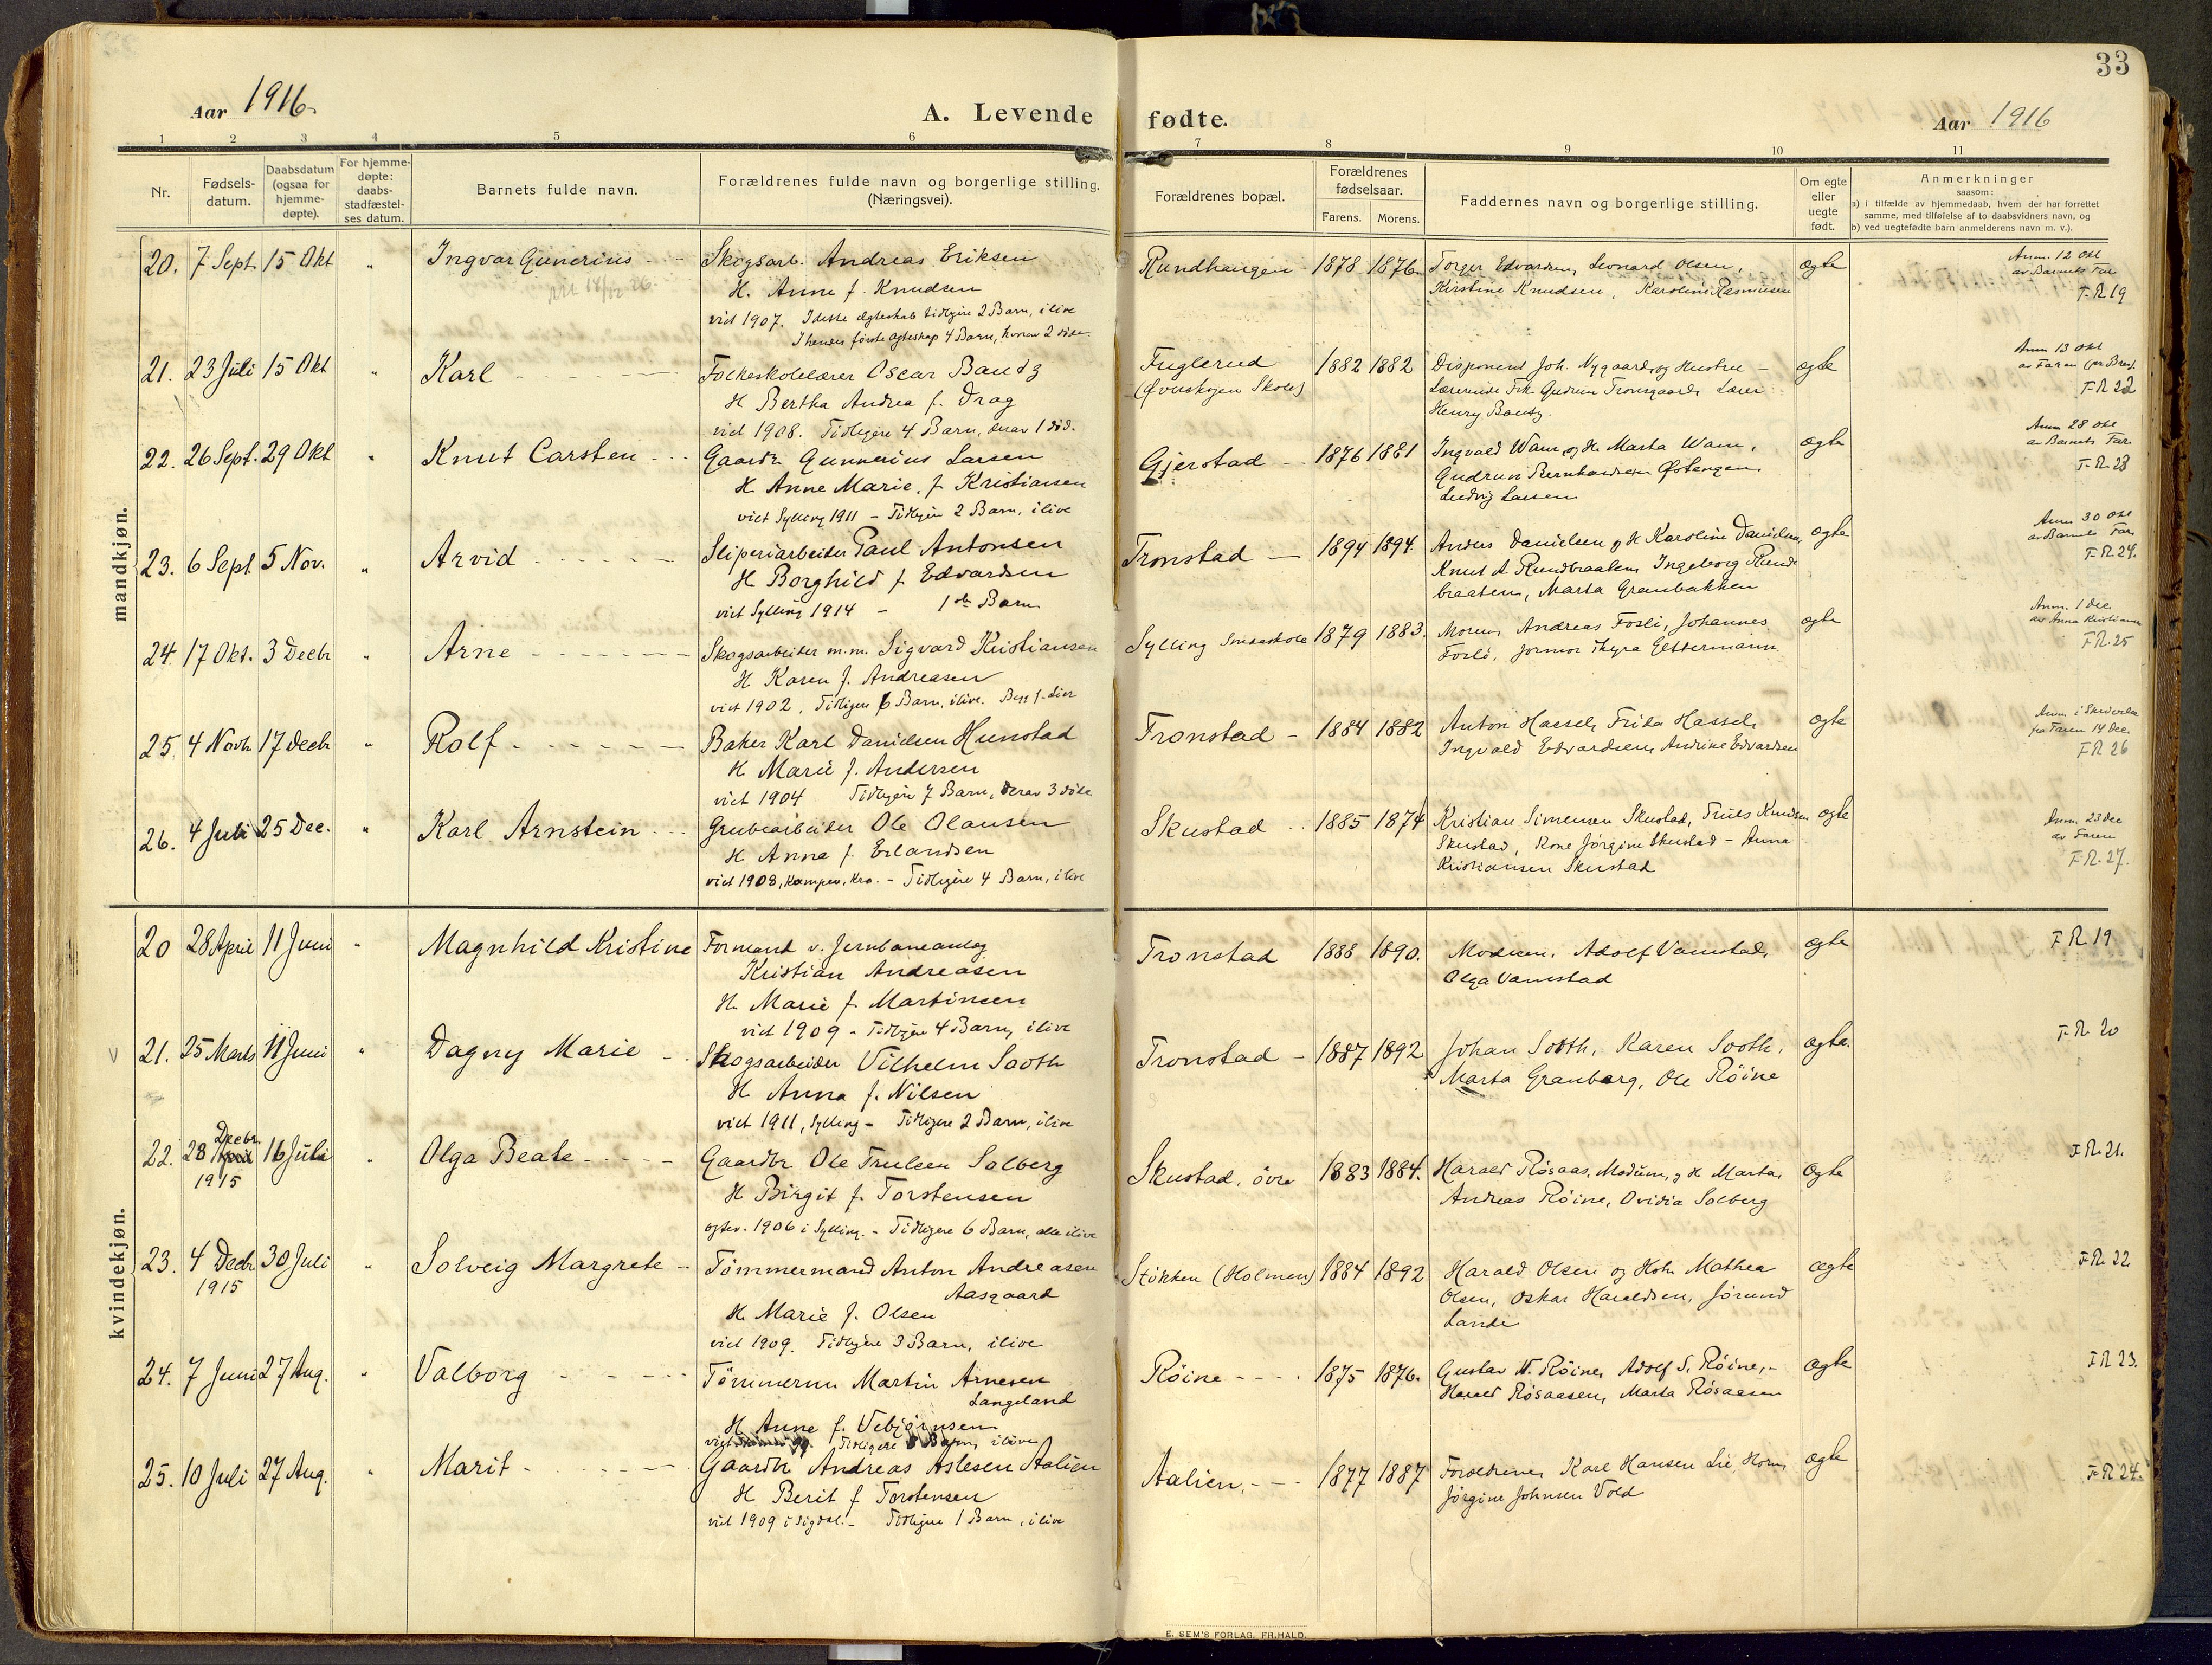 33
Aar 1916.
A. Levende fødte.
Aar 1916
1 2 3 4 5 6 7 8 9 10 11
Nr.
Fødsels-
datum.
Daabsdatum
(ogsaa for
hjemme-
døpte).
For hjemme-
døpte:
daabs-
stadfæstel-
ses datum.
Barnets fulde navn.
Forældrenes fulde navn og borgerlige stilling.
(Næringsvei).
Forældrenes bopæl.
Forældrenes
fødselsaar.
Farens. Morens.
Faddernes navn og borgerlige stilling.
Om egte
eller
uegte
født.
Anmerkninger
saasom:
a) i tilfælde av hjemmedaab, hvem der har forrettet
samme, med tilføielse af to daabsvidners navn, og
b) ved uegtefødte barn anmelderens navn m. v.).
mandkjøn.
20. 7 Sept 15 Okt " Ingvar Gunerius Skogsarb. Andreas Eriksen Rundhaugen 1878 1876 Torger Edvardsen, Leonard Olsen, ægte Anm. 12 Okt
H. Anne f. Knudsen Kirstine Knudsen, Karoline Rasmusen av Barnets Far
viet 1907. I dette ægteskab tidligere 2 Barn, ilive F.R 19
I hendes første ægteskap 4 Barn, hvorav 2 døde.
21. 23 Juli 15 Okt " Karl Folkeskolelærer Oscar Bautz Fuglerud 1882 1882 Disponent Joh. Nygaard og Hustru - ægte Anm 13 Okt
H Bertha Andrea f. Drag (Øvreskogen Skole) Lærerinde Frk Gudrun Tronsgaard, Lærer av Faren (pr Brev).
viet 1908. Tidligere 4 Barn, derav 1 død. Henry Bautz. F.R 22
22. 26 Sept. 29 Okt " Knut Carsten Gaardbr Gunnerius Larsen Gjerstad 1876 1881 Ingvald Wam og H. Marta Wam, ægte Anm 28 Okt
H Anne Marie, f Kristiansen Gudrun Bernhardsen Østengen av Barnets Far
viet Sylling 1911 - Tidligere 2 Barn, ilive Ludvig Larsen F.R.23
23. 6 Sept 5 Nov. " Arvid Sliperiarbeider Paul Antonsen Tronstad 1894 1894 Anders Danielsen og H Karoline Danielsen, ægte Anm 30 Okt
H Borghild f Edvardsen Knut A Rundbraaten, Ingeborg Rund- av Barnets Far
viet Sylling 1914 - 1ste Barn braaten, Marta Granbakken F.R.24.
24. 17 Okt. 3 Decbr " Arne Skogsarbeider m.m. Sigvard Kristiansen Sylling Smaaskole 1879 1883. Moren, Andreas Fosli, Johannes ægte Anm. 1 Dec.
H Karen f. Andreasen Fosli, Jormor Thyra Ellermann av Anna Kristiansen
viet 1902, Tidligere 6 Barn, ilive. Begg f. Lier F.R.25
25. 4 Novbr 17 Decbr " Rolf Baker Karl Danielsen Hunstad Tronstad 1884 1882 Anton Hassel, Frida Hassel, ægte
H. Marie f. Andersen Ingvald Edvardsen, Andrine Edvardsen fra Faren 14 Dec.
viet 1904 Tidligere 7 Barn, derav 3 døde F.R 26
26. 4 Juli 25 Dec. " Karl Arnstein Grubearbeider Ole Olausen Skustad 1885 1874 Kristian Simensen Skustad, Truls Knudsen ægte Anm. 23 Dec
H Anna f. Erlandsen Skustad, Kone Jørgine Skustad - Anna av Faren
viet 1908, Kampen, Kra. - Tidligere 4 Barn, ilive Kristiansen Skustad F.R.27.
kvindekjøn.
20 28 April 11 Juni " Magnhild Kristine Formand v. Jernbaneanlæg Tronstad 1888 1890. Moderen, Adolf Vamstad, ægte F R 19
Kristian Andreasen Olga Vamstad
H. Marie f Martinsen
viet 1909 - Tidligere 4 Barn, ilive
v 21. 25 Marts 11 Juni " Dagny Marie Skogsarbeider Vilhelm Sooth Tronstad 1887 1892 Johan Sooth, Karen Sooth, ægte. F R 20
H. Anna f. Nilsen Marta Granberg, Ole Röine
viet 1911, Sylling - Tidligere 2 Barn, ilive
22. 28 Decbr. 1915 16 Juli " Olga Beate Gaardbr Ole Trulsen Solberg Skustad, övre 1883 1884. Harald Røsaas, Modum, og H Marta, ægte F R 21.
H Birgit f. Torstensen Andreas Röine, Ovidia Solberg
egtev. 1906 i Sylling. - Tidligere 6 Barn, alle ilive
23. 4 Decbr 1915 30 Juli " Solveig Margrete Tömmermand Anton Andreasen Aasgaard Stökken (Holmen) 1884 1892 Harald Olsen og Hstr Mathea ægte F R 22
H. Marie f. Olsen Olsen, Oskar Haraldsen, Jörund
viet 1909. Tidligere 3 Barn, ilive Lande
24. 7 Juni 27 Aug. " Valborg Tömmerm Martin Arnesen Langeland Röine 1875 1876. Gustav N. Röine, Adolf S. Röine, - ægte F R 23.
H Anne f. Vebjörnsen Harald Røsaasen, Marta Røsaasen
viet Tidligere 8 Barn, ilive
25. 10 Juli 27 Aug. " Marit Gaardbr Andreas Aslesen Aalien Aalien, 1877 1887 Forældrene, Karl Hansen Lie, Horn, ægte F R 24.
H Berit f Torstensen Jörgine Johnsen Vold
viet 1909 i Sigdal. - Tidligere 1 Barn, ilive
E. SEM'S FORLAG, FR.HALD.